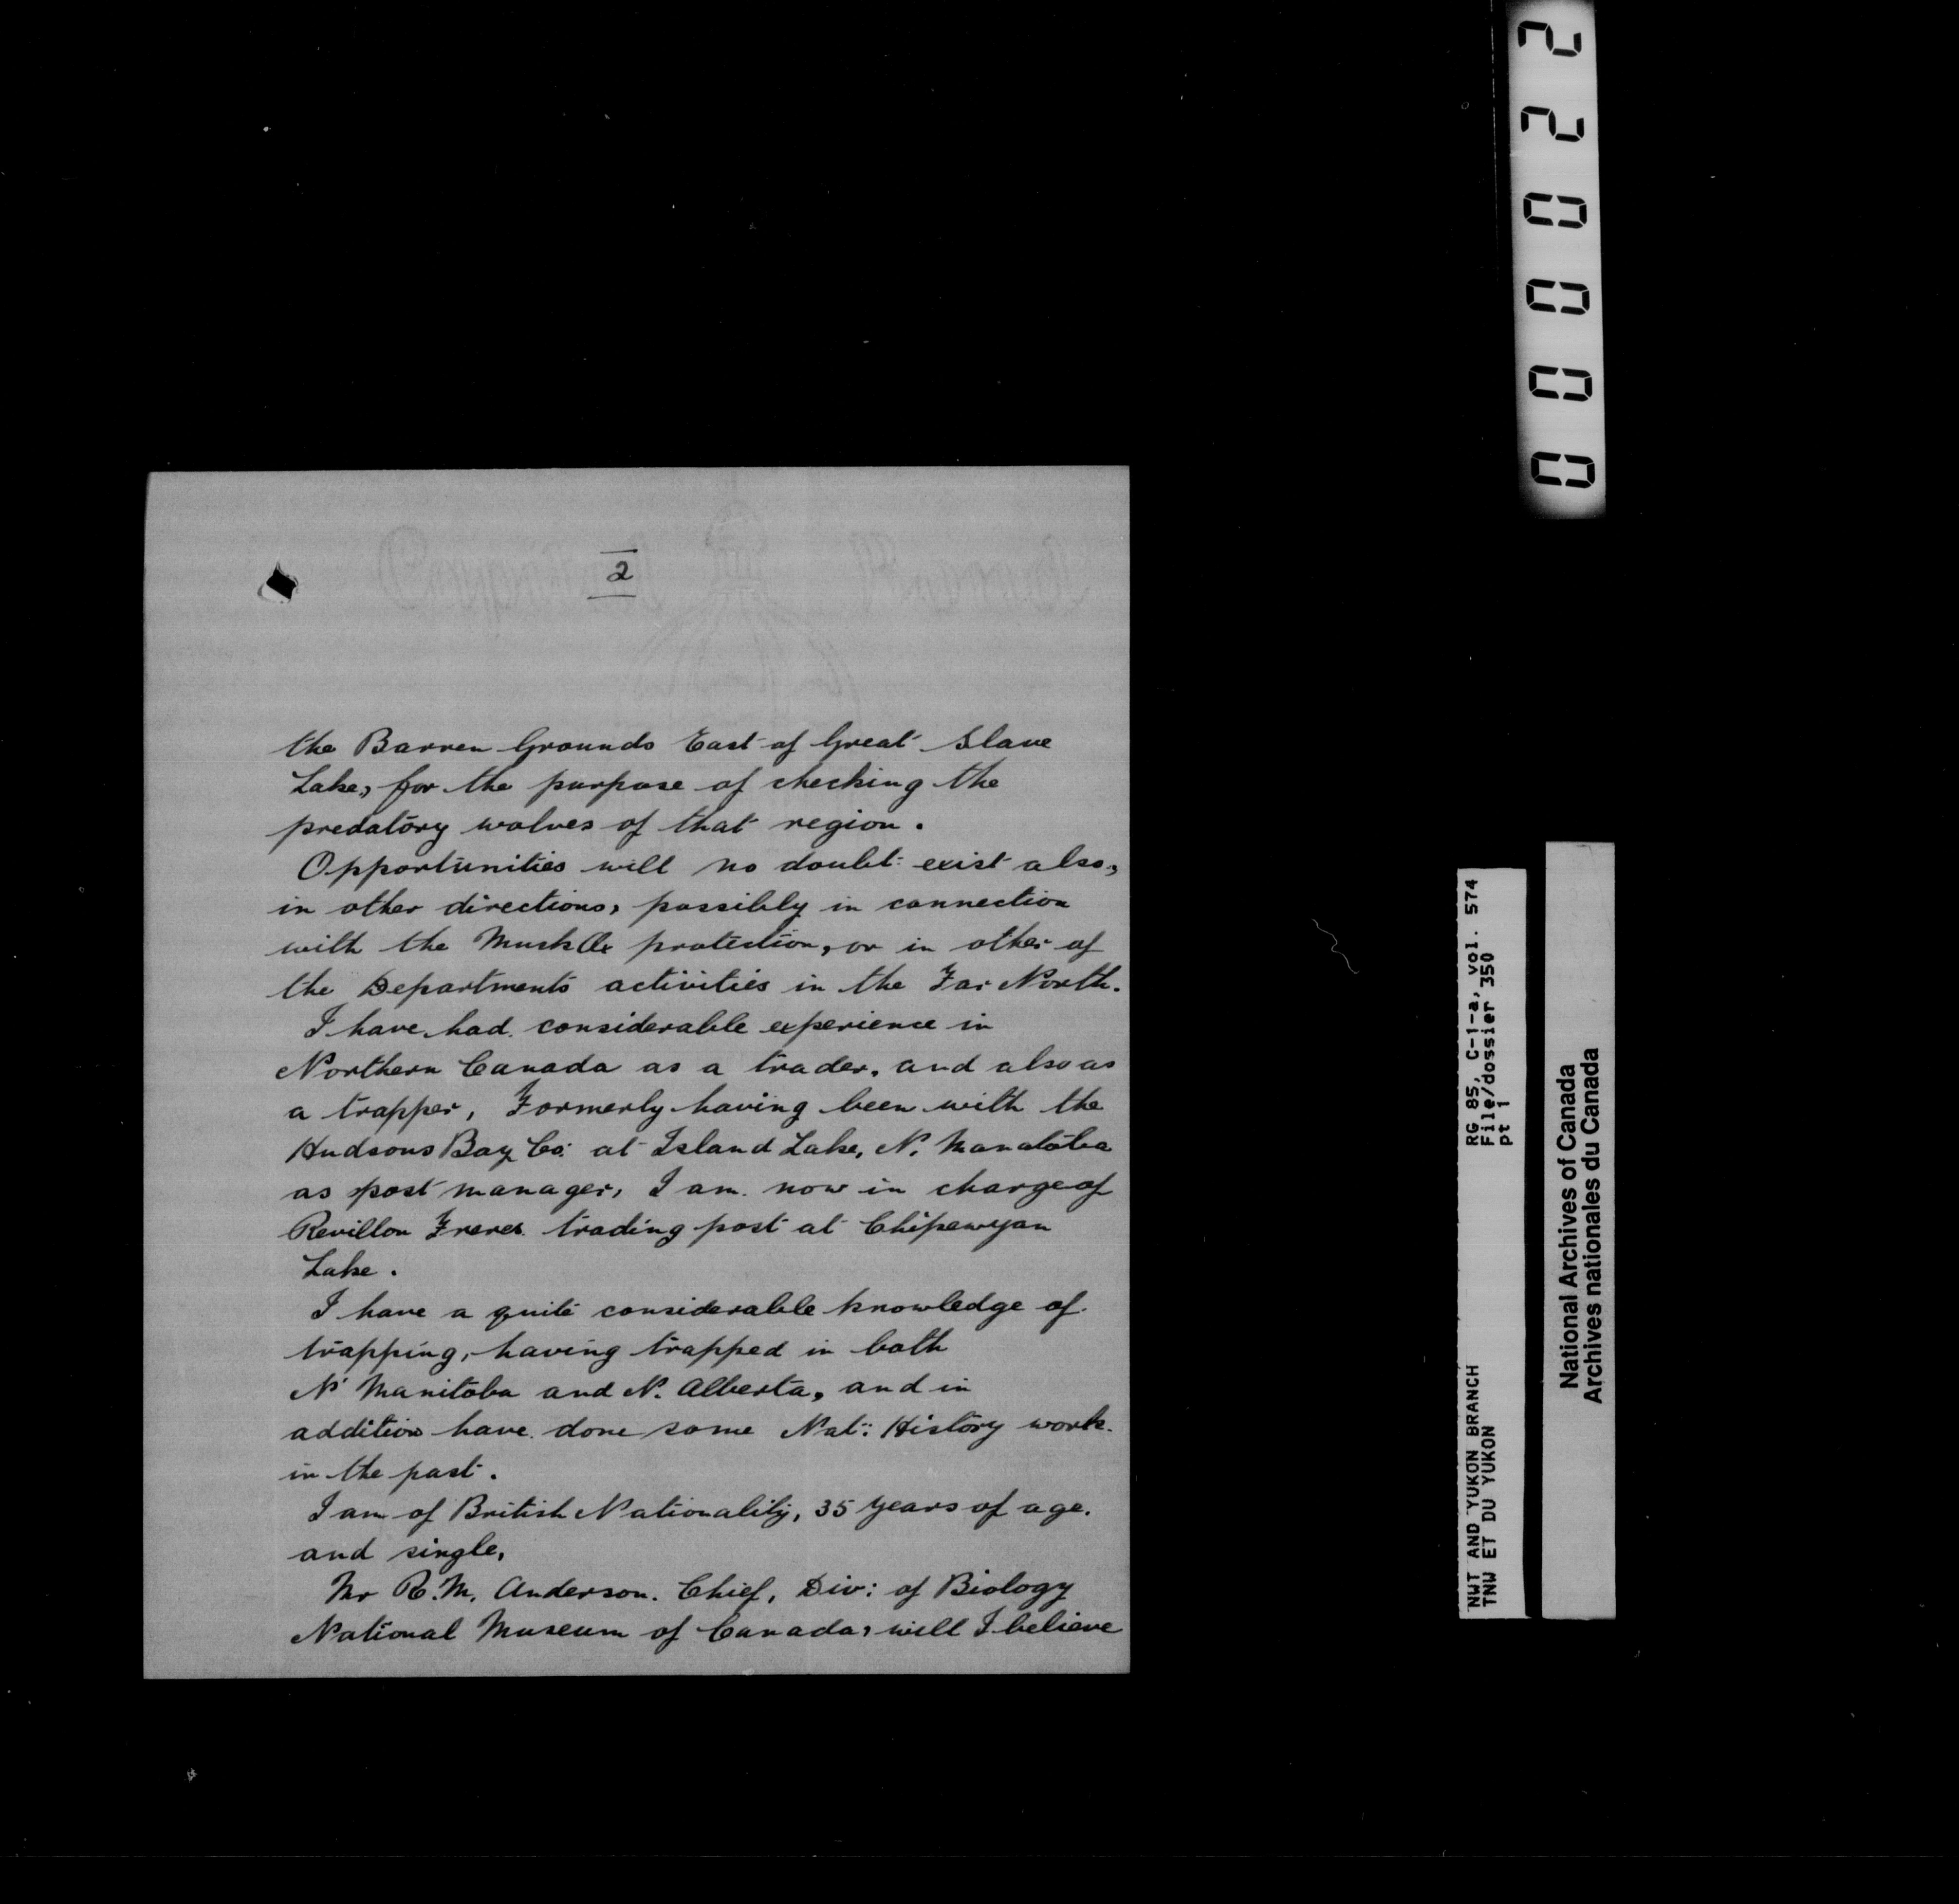 2
the Barren Grounds East of Great Slave
Lake, for the purpose of checking the
predatory wolves of that region.
Opportunities will no doubt exist also,
in other directions, possibly in connection
with the Musk Ox protection, or in other of
the Departments activities in the Far North.
I have had considerable experience in
Northern Canada as a trader, and also as
a trapper, Formerly having been with the
Hudsons Bay Co. at Island Lake, N. Manatoba
as post manager, I am now in charge of
Revillon Freres trading post at Chipewyan
Lake.
I have a quite considerable knowledge of
trapping, having trapped in both
N. Manitoba and N. Alberta, and in
addition have done some Nat: History work
in the past.
I am of British Nationality, 35 years of age.
and single,
Mr R.M. Anderson. Chief, Div: of Biology
National Museum of Canada, will I believe
000022
RG 85, C-1-a, vol. 574
File/dossier 350
pt 1
NWT AND YUKON BRANCH
TNW ET DU YUKON
National Archives of Canada
Archives nationales du Canada